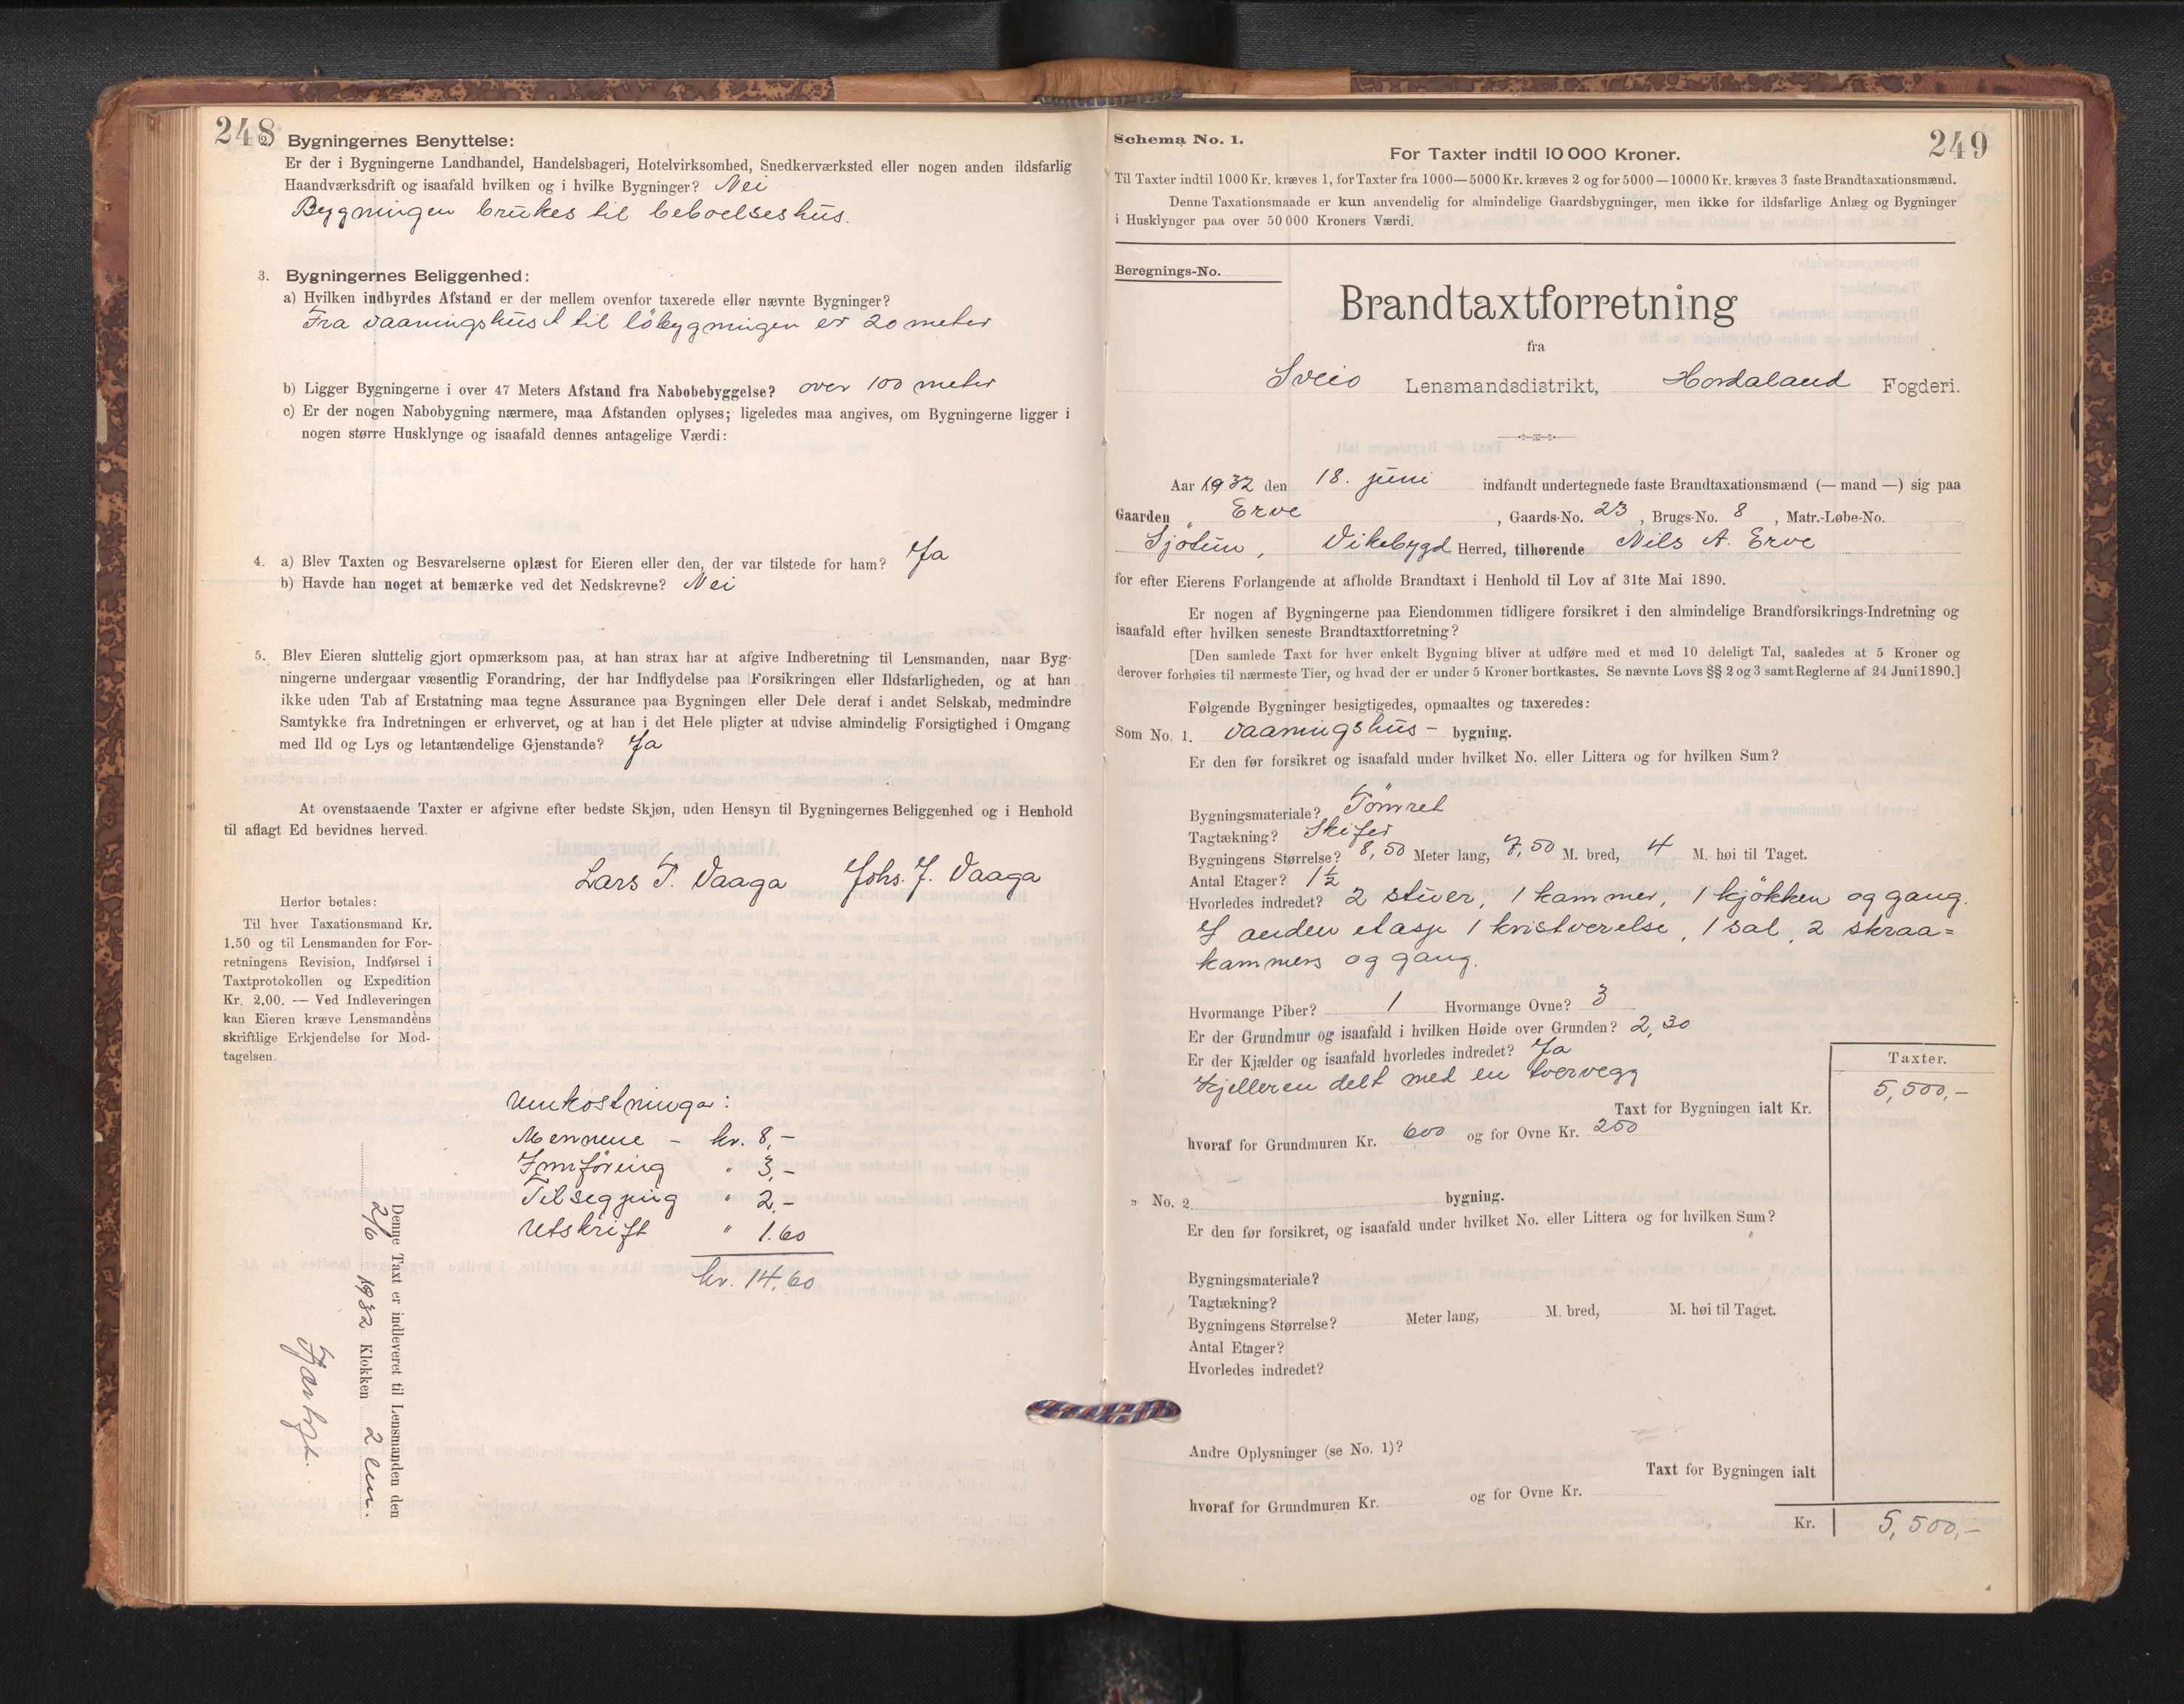 248
2. Bygningernes Benyttelse:
Er der i Bygningerne Landhandel, Handelsbageri, Hotelvirksomhed, Snedkerværksted eller nogen anden ildsfarlig
Haandværksdrift og isaafald hvilken og i hvilke Bygninger? Nei
Bygningen brukes til beboelseshus.
3. Bygningernes Beliggenhed:
a) Hvilken indbyrdes Afstand er der mellem ovenfor taxerede eller nævnte Bygninger?
Fra vaaningshuset til löbygningen er 20 meter
b) Ligger Bygningerne i over 47 Meters Afstand fra Nabobebyggelse? over 100 meter
c) Er der nogen Nabobygning nærmere, maa Afstanden oplyses; ligeledes maa angives, om Bygningerne ligger i
nogen større Husklynge og isaafald dennes antagelige Værdi:
4. a) Blev Taxten og Besvarelserne oplæst for Eieren eller den, der var tilstede for ham? Ja
b) Havde han noget at bemærke ved det Nedskrevne? Nei
5. Blev Eieren sluttelig gjort opmærksom paa, at han strax har at afgive Indberetning til Lensmanden, naar Byg-
ningerne undergaar væsentlig Forandring, der har Indflydelse paa Forsikringen eller Ildsfarligheden, og at han
ikke uden Tab af Erstatning maa tegne Assurance paa Bygningen eller Dele deraf i andet Selskab, medmindre
Samtykke fra Indretningen er erhvervet, og at han i det Hele pligter at udvise almindelig Forsigtighed i Omgang
med Ild og Lys og letantændelige Gjenstande? Ja
At ovenstaaende Taxter er afgivne efter bedste Skjøn, uden Hensyn til Bygningernes Beliggenhed og i Henhold
til aflagt Ed bevidnes herved.
Lars T. Vaaga Johs. J. Vaaga
Herfor betales:
Til hver Taxationsmand Kr.
1.50 og til Lensmanden for For-
retningens Revision, Indførsel i
Taxtprotokollen og Expedition
Kr. 2.00. — Ved Indleveringen
kan Eieren kræve Lensmandens
skriftlige Erkjendelse for Mod-
tagelsen.
Umkostningar:
Mennene - kr. 8,-
Innföring " 3,-
Tilsegjing " 2,-
Utskrift " 1.60
kr. 14,60
Denne Taxt er indleveret til Lensmanden den
2/6 1932 Klokken 2 em.
249
Schema No. 1.
For Taxter indtil 10 000 Kroner.
Til Taxter indtil 1000 Kr. kræves 1, for Taxter fra 1000—5000 Kr. kræves 2 og for 5000—10000 Kr. kræves 3 faste Brandtaxationsmænd.
Denne Taxationsmaade er kun anvendelig for almindelige Gaardsbygninger, men ikke for ildsfarlige Anlæg og Bygninger
i Husklynger paa over 50 000 Kroners Værdi.
Beregnings-No.
Brandtaxtforretning
fra
Sveio Lensmandsdistrikt, Hordaland Fogderi.
Aar 1932 den 18. juni indfandt undertegnede faste Brandtaxationsmænd (— mand —) sig paa
Gaarden " Erve , Gaards-No. 23 , Brugs-No. 8 , Matr.-Løbe-No.
Sjotun, Vikebygd Herred, tilhørende Nils A. Erve
for efter Eierens Forlangende at afholde Brandtaxt i Henhold til Lov af 31te Mai 1890.
Er nogen af Bygningerne paa Eiendommen tidligere forsikret i den almindelige Brandforsikrings-Indretning og
isaafald efter hvilken seneste Brandtaxtforretning?
[Den samlede Taxt for hver enkelt Bygning bliver at udføre med et med 10 deleligt Tal, saaledes at 5 Kroner og
derover forhøies til nærmeste Tier, og hvad der er under 5 Kroner bortkastes. Se nævnte Lovs §§ 2 og 3 samt Reglerne af 24 Juni 1890.]
Følgende Bygninger besigtigedes, opmaaltes og taxeredes:
Som No. 1. vaaningshus - bygning.
Er den før forsikret og isaafald under hvilket No. eller Littera og for hvilken Sum?
Bygningsmateriale? Tömret
Tagtækning? Skifer
Bygningens Størrelse? 8,50 Meter lang, 7,50 M. bred, 4 M. høi til Taget.
Antal Etager? 1½
Hvorledes indredet? 2 stuer, 1 kammer, 1 kjökken og gang.
I anden etasje 1 kvistverelse, 1 sal, 2 skraa=
kammers og gang.
Hvormange Piber? 1 Hvormange Ovne? 3
Er der Grundmur og isaafald i hvilken Høide over Grunden? 2,30
Er der Kjælder og isaafald hvorledes indredet? Ja
Kjelleren delt med en tvervegg
Taxter.
5,500,-
Taxt for Bygningen ialt Kr.
hvoraf for Grundmuren Kr. 600 og for Ovne Kr. 250
" No. 2. bygning.
Er den før forsikret, og isaafald under hvilket No. eller Littera og for hvilken Sum?
Bygningsmateriale?
Tagtækning?
Bygningens Størrelse? Meter lang, M. bred, M. høi til Taget.
Antal Etager?
Hvorledes indredet?
Andre Oplysninger (se No. 1)?
Taxt for Bygningen ialt
hvoraf for Grundmuren Kr. og for Ovne Kr.
Kr. 5,500,-